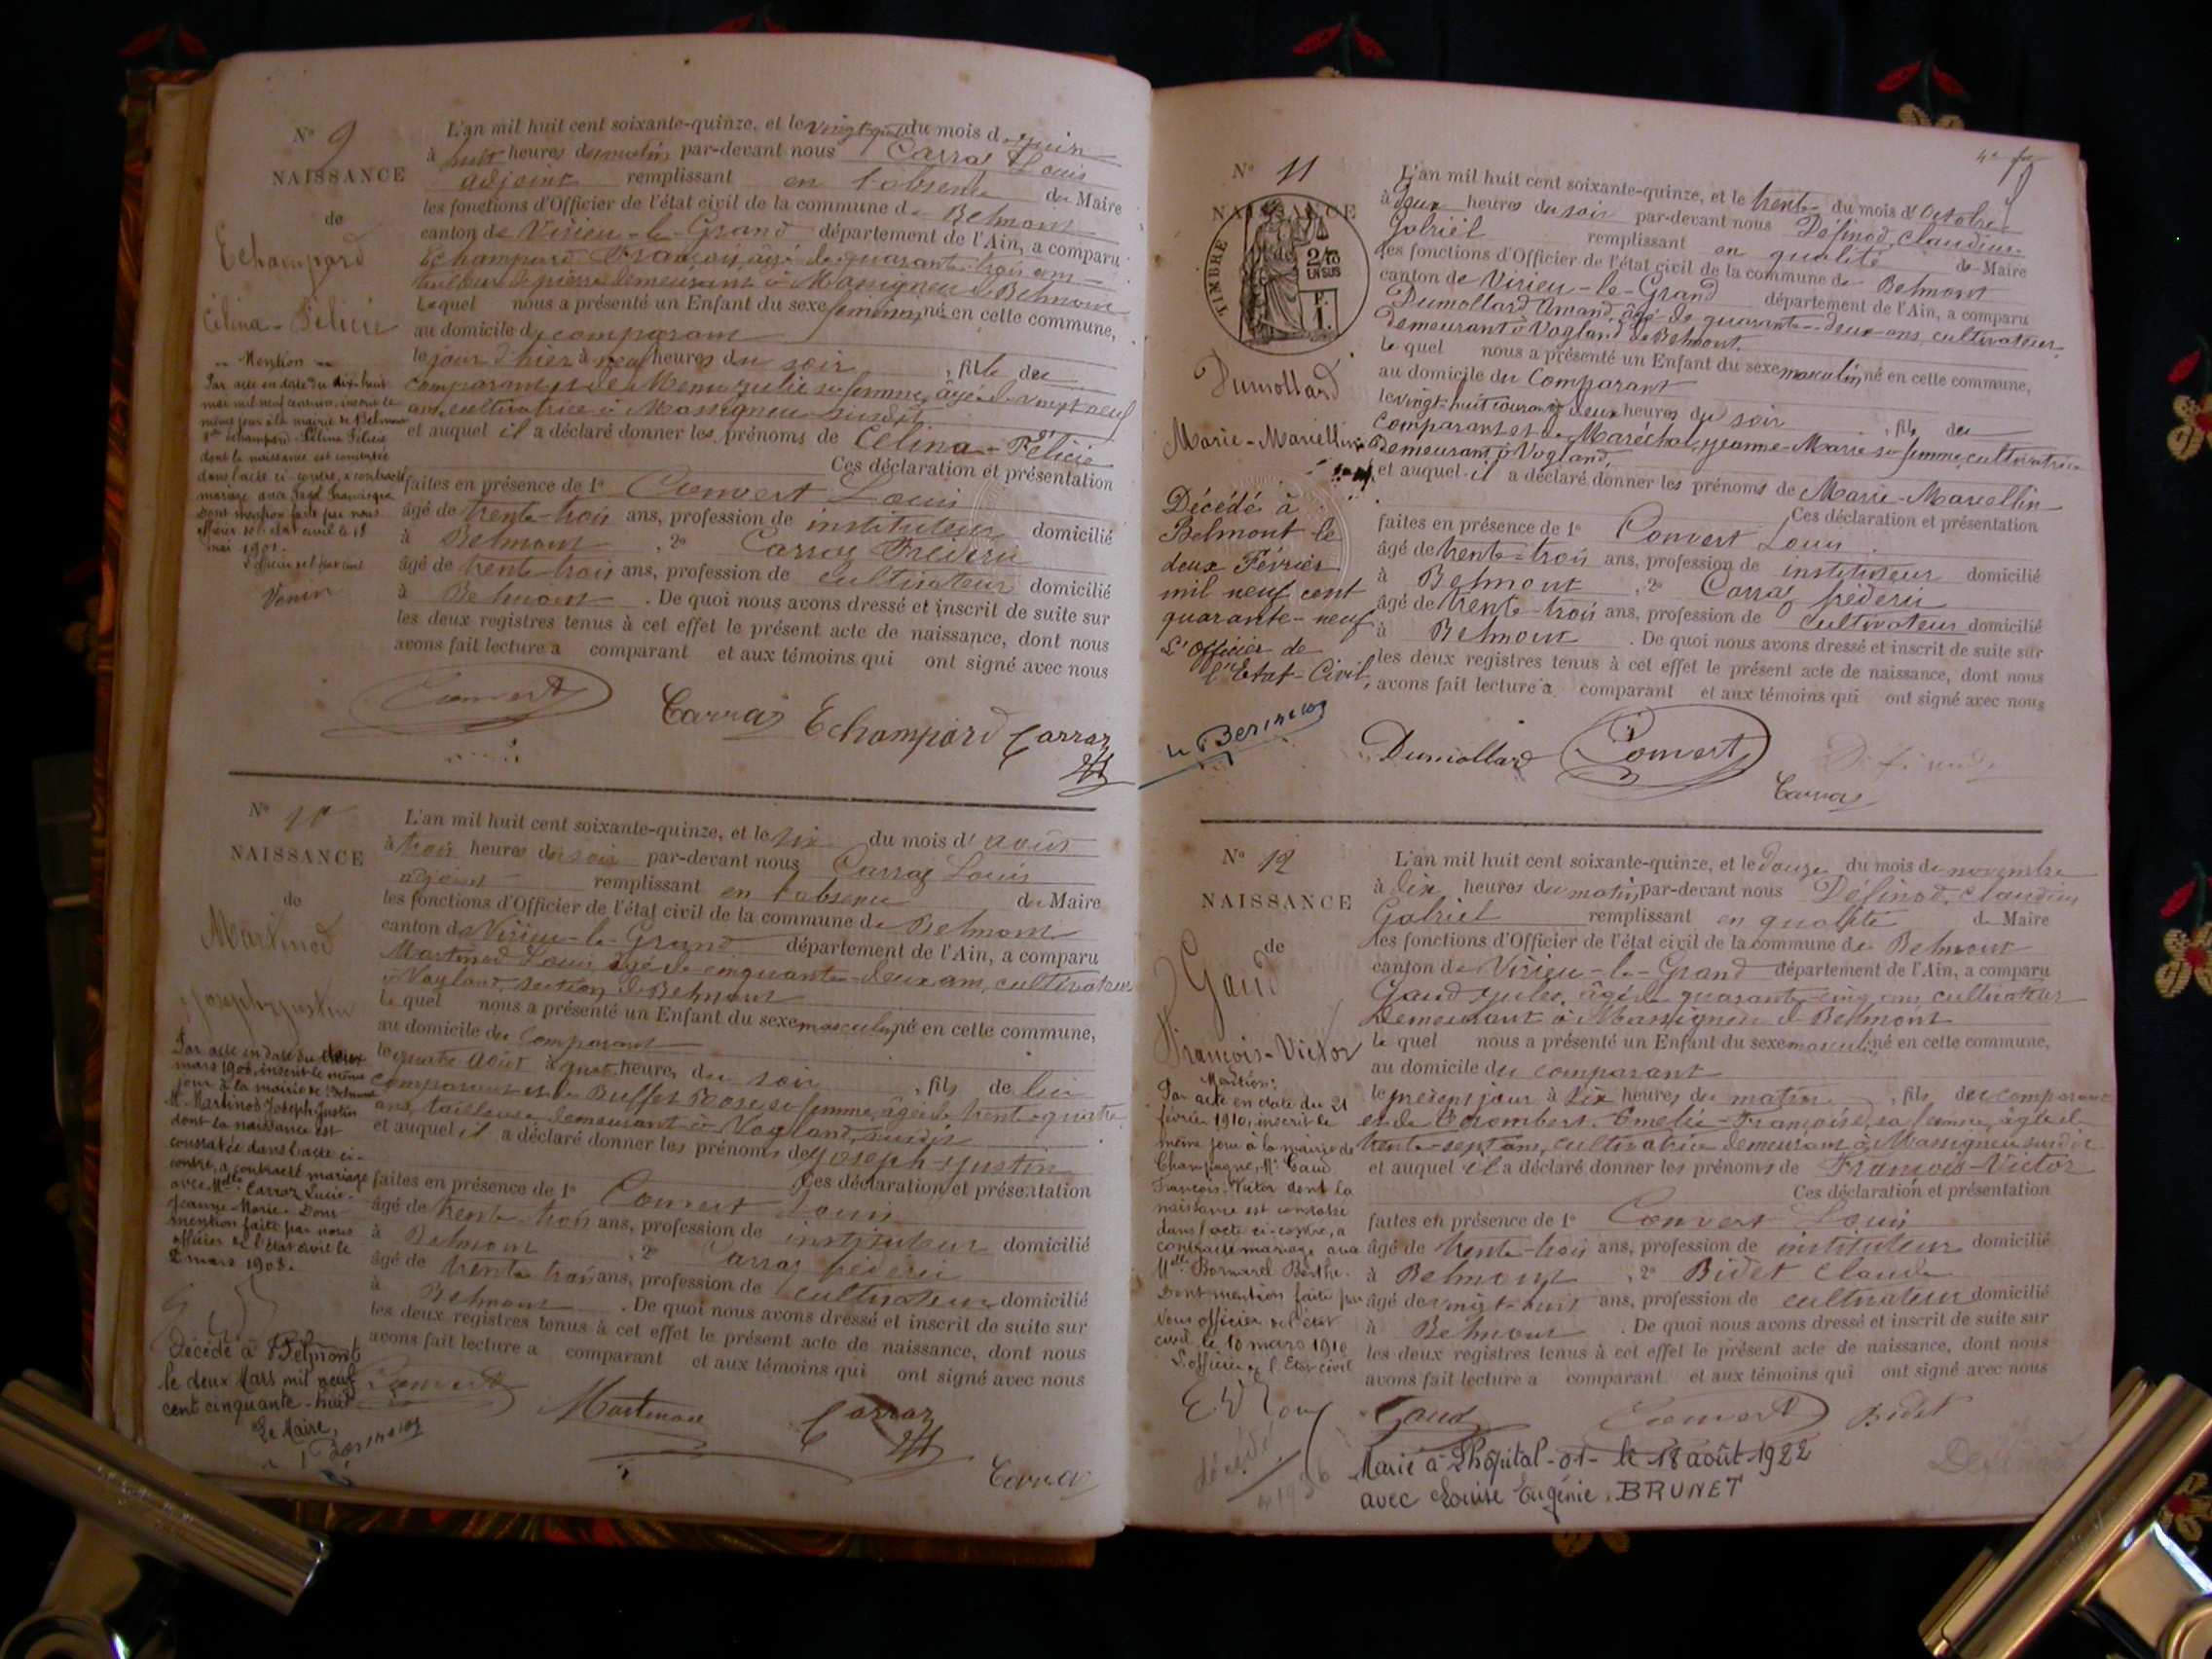 N° 9
NAISSANCE
de
Echampard
Célina-Félicie
-- Mention --
Par acte en date du dix-huit
mai mil neuf cent un, inscrit le
même jour à la mairie de Belmont
Echampard Célina Félicie
dont la naissance est constatée
dans l'acte ci-contre, a contracté
mariage avec
Dont mention faite par nous
officier de l'état civil le 18
mai 1901.
L'officier de l'état civil
L'an mil huit cent soixante-quinze, et le du mois de juin
à huit heures du matin par-devant nous Carraz Louis
adjoint remplissant en l'absence du Maire
les fonctions d'Officier de l'état civil de la commune de Belmont
canton de Virieu-le-Grand département de l'Ain, a comparu
Echampard François, âgé de quarante-trois ans
tailleur de pierre demeurant à Massignieu de Belmont
Lequel nous a présenté un Enfant du sexe féminin, né en cette commune,
au domicile du comparant
le jour d'hier à neuf heures du soir, fille du
comparant et de Julie sa femme, âgée de vingt neuf
ans, cultivatrice à Massignieu susdit
et auquel il a déclaré donner les prénoms de Célina-Félicie
Ces déclaration et présentation
faites en présence de 1° Convert Louis
âgé de trente-trois ans, profession de instituteur domicilié
à Belmont, 2° Carraz Frédéric
âgé de trente-trois ans, profession de cultivateur domicilié
à Belmont. De quoi nous avons dressé et inscrit de suite sur
les deux registres tenus à cet effet le présent acte de naissance, dont nous
avons fait lecture a comparant et aux témoins qui ont signé avec nous
Convert Carraz Echampard Carraz
N° 10
NAISSANCE
de
Martinod
Joseph-Justin
Par acte en date du deux
mars 1908, inscrit le même
jour à la mairie de Belmont
M. Martinod Joseph-Justin
dont la naissance est
constatée dans l'acte ci-
contre, a contracté mariage
avec Mlle Carraz Lucie-
Jeanne-Marie. Dont
mention faite par nous
officier de l'état civil le
2 mars 1908.
Décédé à Belmont
le deux Mars mil neuf
cent cinquante-huit
Le Maire,
L'an mil huit cent soixante-quinze, et le six du mois d'août
à trois heures du soir par-devant nous Carraz Louis
adjoint remplissant en l'absence du Maire
les fonctions d'Officier de l'état civil de la commune de Belmont
canton de Virieu-le-Grand département de l'Ain, a comparu
Martinod Louis, âgé de cinquante-deux ans, cultivateur
à Vogland, section de Belmont
Lequel nous a présenté un Enfant du sexe masculin, né en cette commune,
au domicile du comparant
le quatre août à quatre heures du soir, fils de lui
comparant et de Buffet Rose, sa femme, âgée de trente-quatre
ans, tailleuse, demeurant à Vogland, susdit
et auquel il a déclaré donner les prénoms de Joseph-Justin
Ces déclaration et présentation
faites en présence de 1° Convert Louis
âgé de trente-trois ans, profession de instituteur domicilié
à Belmont, 2° Carraz Fréderic
âgé de trente trois ans, profession de cultivateur domicilié
à Belmont. De quoi nous avons dressé et inscrit de suite sur
les deux registres tenus à cet effet le présent acte de naissance, dont nous
avons fait lecture a comparant et aux témoins qui ont signé avec nous
Convert Martinod Carraz
Carraz
N° 11
NAISSANCE
de
TIMBRE
2/10
EN SUS
Dumollard
Marie-Marcellin
Décédé à
Belmont le
deux Février
mil neuf cent
quarante-neuf
L'Officier de
l'Etat-Civil,
L'an mil huit cent soixante-quinze, et le trente du mois d'octobre
à deux heures du soir par-devant nous Définod, Claudius
Gabriel remplissant en qualité de Maire
les fonctions d'Officier de l'état civil de la commune de Belmont
canton de Virieu-le-Grand département de l'Ain, a comparu
Dumollard Amand, âgé de quarante-deux ans, cultivateur,
demeurant à Vogland de Belmont
Lequel nous a présenté un Enfant du sexe masculin, né en cette commune,
au domicile du comparant
le vingt-huit courant à deux heures du soir, fils du
comparant et de Maréchal, Jeanne-Marie sa femme, cultivatrice
demeurant à Vogland,
et auquel il a déclaré donner les prénoms de Marie-Marcellin
Ces déclaration et présentation
faites en présence de 1° Convert Louis
âgé de trente-trois ans, profession de instituteur domicilié
à Belmont, 2° Carraz fréderic
âgé de trente-trois ans, profession de cultivateur domicilié
à Belmont. De quoi nous avons dressé et inscrit de suite sur
les deux registres tenus à cet effet le présent acte de naissance, dont nous
avons fait lecture a comparant et aux témoins qui ont signé avec nous
Dumollard Convert Définod
Carraz
N° 12
NAISSANCE
de
Gaud
François-Victor
Mention:
Par acte en date du 21
février 1910, inscrit le
même jour à la mairie de
Champagne, Mr Gaud
François-Victor dont la
naissance est constatée
dans l'acte ci-contre, a
contracté mariage avec
Mlle Bornarel Berthe.
Dont mention faite par
Nous officier de l'état
civil le 10 mars 1910
L'officier de l'Etat civil
décédé
en 1936
L'an mil huit cent soixante-quinze, et le douze du mois de novembre
à dix heures du matin, par-devant nous Définod, Claudius
Gabriel remplissant en qualité de Maire
les fonctions d'Officier de l'état civil de la commune de Belmont
canton de Virieu-le-Grand département de l'Ain, a comparu
Gaud Jules, âgé de quarante-cinq ans, cultivateur
demeurant à Massignieu de Belmont
Lequel nous a présenté un Enfant du sexe masculin, né en cette commune,
au domicile du comparant
le présent jour à six heures du matin, fils du comparant
et de Colombert Emelie-Françoise, sa femme, âgée de
trente-sept ans, cultivatrice demeurant à Massignieu susdit
et auquel il a déclaré donner les prénoms de François-Victor
Ces déclaration et présentation
faites en présence de 1° Convert Louis
âgé de trente-trois ans, profession de instituteur domicilié
à Belmont, 2° Bidet Claude
âgé de vingt-huit ans, profession de cultivateur domicilié
à Belmont. De quoi nous avons dressé et inscrit de suite sur
les deux registres tenus à cet effet le présent acte de naissance, dont nous
avons fait lecture a comparant et aux témoins qui ont signé avec nous
Gaud Convert Bidet
Marié à L'hôpital-01- le 18 août 1922
avec Louise Eugénie BRUNET